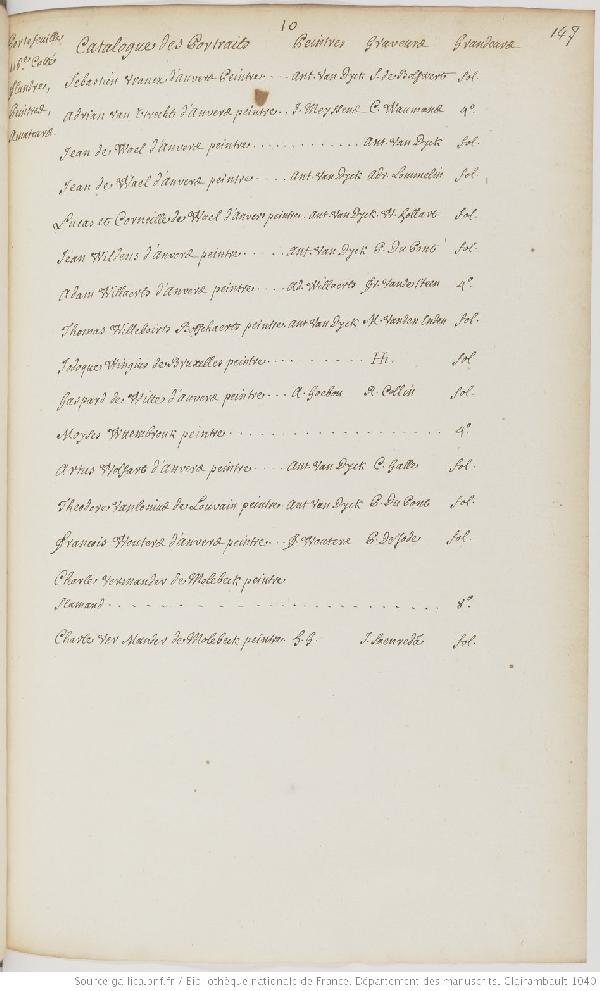 10
149
Portefeuille
Flandres,
Peintres,
Amateurs
Catalogue des Portraits Peintres Graveurs Grandeurs
Sebastien Vrancx d'anvers Peintre Ant. Van Dyck S. de Bolswert fol.
Adrian van Utrecht d'Anvers peintre J. Meyssens C. Waumans 4º
Jean de Wael d'Anvers peintre Ant. Van Dyck fol.
Jean de Wael d'Anvers peintre Ant. Van Dyck Adr. Lommelin fol.
Lucas et Corneille de Wael d'Anvers peintre Ant. Van Dyck W. Hollart fol.
Jean Wildens d'Anvers peintre Ant. Van Dyck P. Du Pont fol.
Adam Willaerts d'Anvers peintre Ad. Willaerts Fr. Vander Steen 4º.
Thomas Willeboirts Bosschaerts peintre Ant Van Dyck M. Vanden Enden fol.
Jodoque Winguis de Bruxelles peintre HH. fol.
Gaspard de Witte d'Anvers peintre A. Goebou R. Collin fol.
Moyses Wuembrouk peintre 4º
Artus Wolfart d'Anvers peintre Ant. Van Dyck C. Galle fol.
Theodore Vanlonius de Louvain peintre Ant Van Dyck P. Du Pont fol.
François Wouters d'anvers peintre F. Wouters P. De Jode fol.
Charle Vermander de Molebeck peintre
flamand 8º.
Charle Ver Mander de Molebeck peintre H. G. J. Saenredã fol.
Source gallica.bnf.fr / Bibliothèque nationale de France. Département des manuscrits. Clairambault 1040